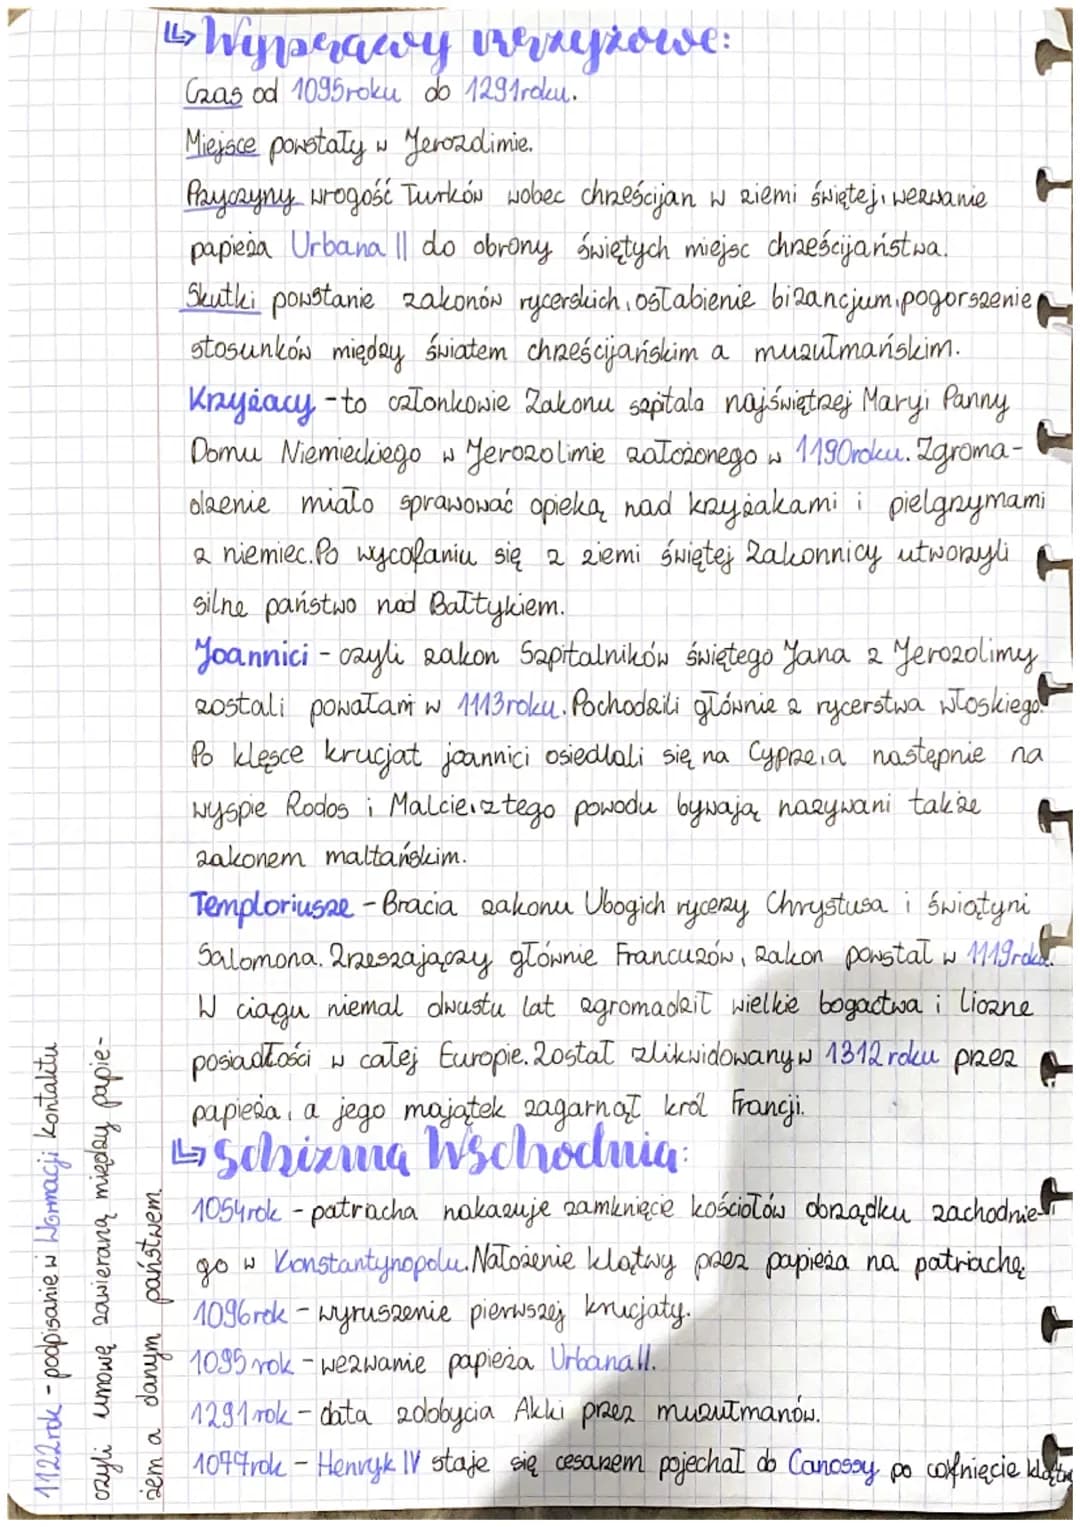 Wyprawy krzyżowe:
Czas od 1095roku do 1291roku.
Miejsce powstały w Jerozolimie.
Przyczyny wrogość Turków wobec chrześcijan w ziemi świętej, wezwanie
papieża Urbana II do obrony świętych miejsc chrześcijaństwa.
Skutki powstanie zakonów rycerskich, osłabienie bizancjum, pogorszenie
stosunków między światem chrześcijańskim a muzułmańskim.
Krzyżacy - to członkowie Zakonu szpitala najświętrzej Maryi Panny
Domu Niemieckiego w Jerozolimie założonego w 1190roku. Zgroma-
dzenie miało sprawować opieką nad krzyżakami i pielgrzymami
z niemiec. Po wycofaniu się z ziemi świętej Zakonnicy utworzyli
silne państwo nad Bałtykiem.
Joannici - czyli zakon Szpitalników świętego Jana z Jerozolimy
zostali powołani w 1113roku. Pochodzili głównie z rycerstwa włoskiego.
Po klęsce krucjat joannici osiedlali się na Cyprze, a następnie na
wyspie Rodos i Malcie, z tego powodu bywają nazywani także
zakonem maltańskim.
Temploriusze - Bracia zakonu Ubogich rycerzy Chrystusa i świątyni
Salomona. Zrzeszajączy głównie Francuzów, zakon powstał w 1119roku.
W ciągu niemal dwustu lat zgromadził wielkie bogactwa i liczne
posiadłości w całej Europie. Został zlikwidowany w 1312 roku przez
papieża, a jego majątek zagarnął król Francji.
Schizma Wschodnia:
1054rok - patriacha nakazuje zamknięcie kościołów obrządku zachodnie-
go w Konstantynopolu. Nałożenie klątwy przez papieża na patriachę
1096rok - wyruszenie pierwszej krucjaty.
1095 rok - wezwanie papieża Urbana II.
1291 rok - data zdobycia Akki przez muzułmanów.
1077rok - Henryk IV staje się cesarzem pojechał do Canossy po cofnięcie klątwy
1122rok - podpisanie w Wormacji kontaktu
czyli umowę zawieraną między papie-
żem a danym państwem.